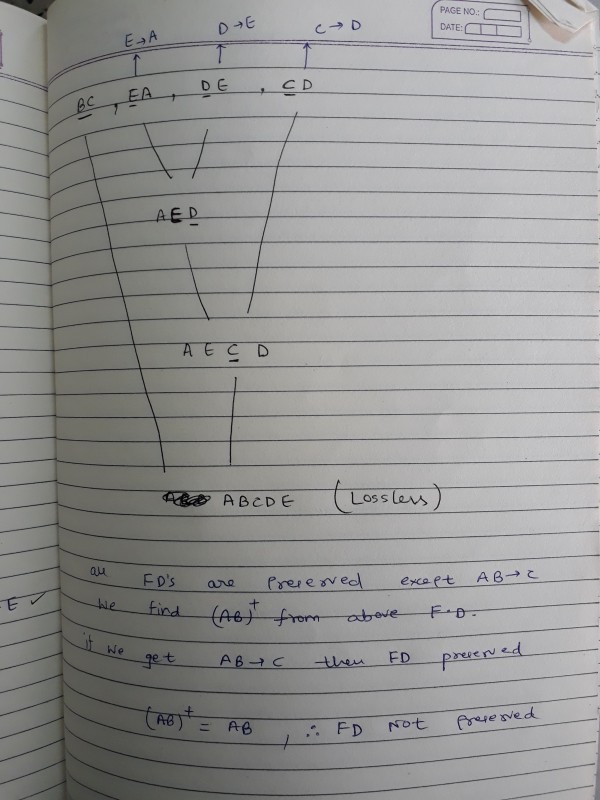 PAGE NO.:
DATE:
E→A D→E C→D
BC, EA, DE, CD
AED
AECD
ABCDE (Lossless)
all FD's are Preserved except AB→C
We find (AB)⁺ from above F.D.
if we get AB→C then FD preserved
(AB)⁺ = AB, ∴ FD NOT Preserved
E ✓